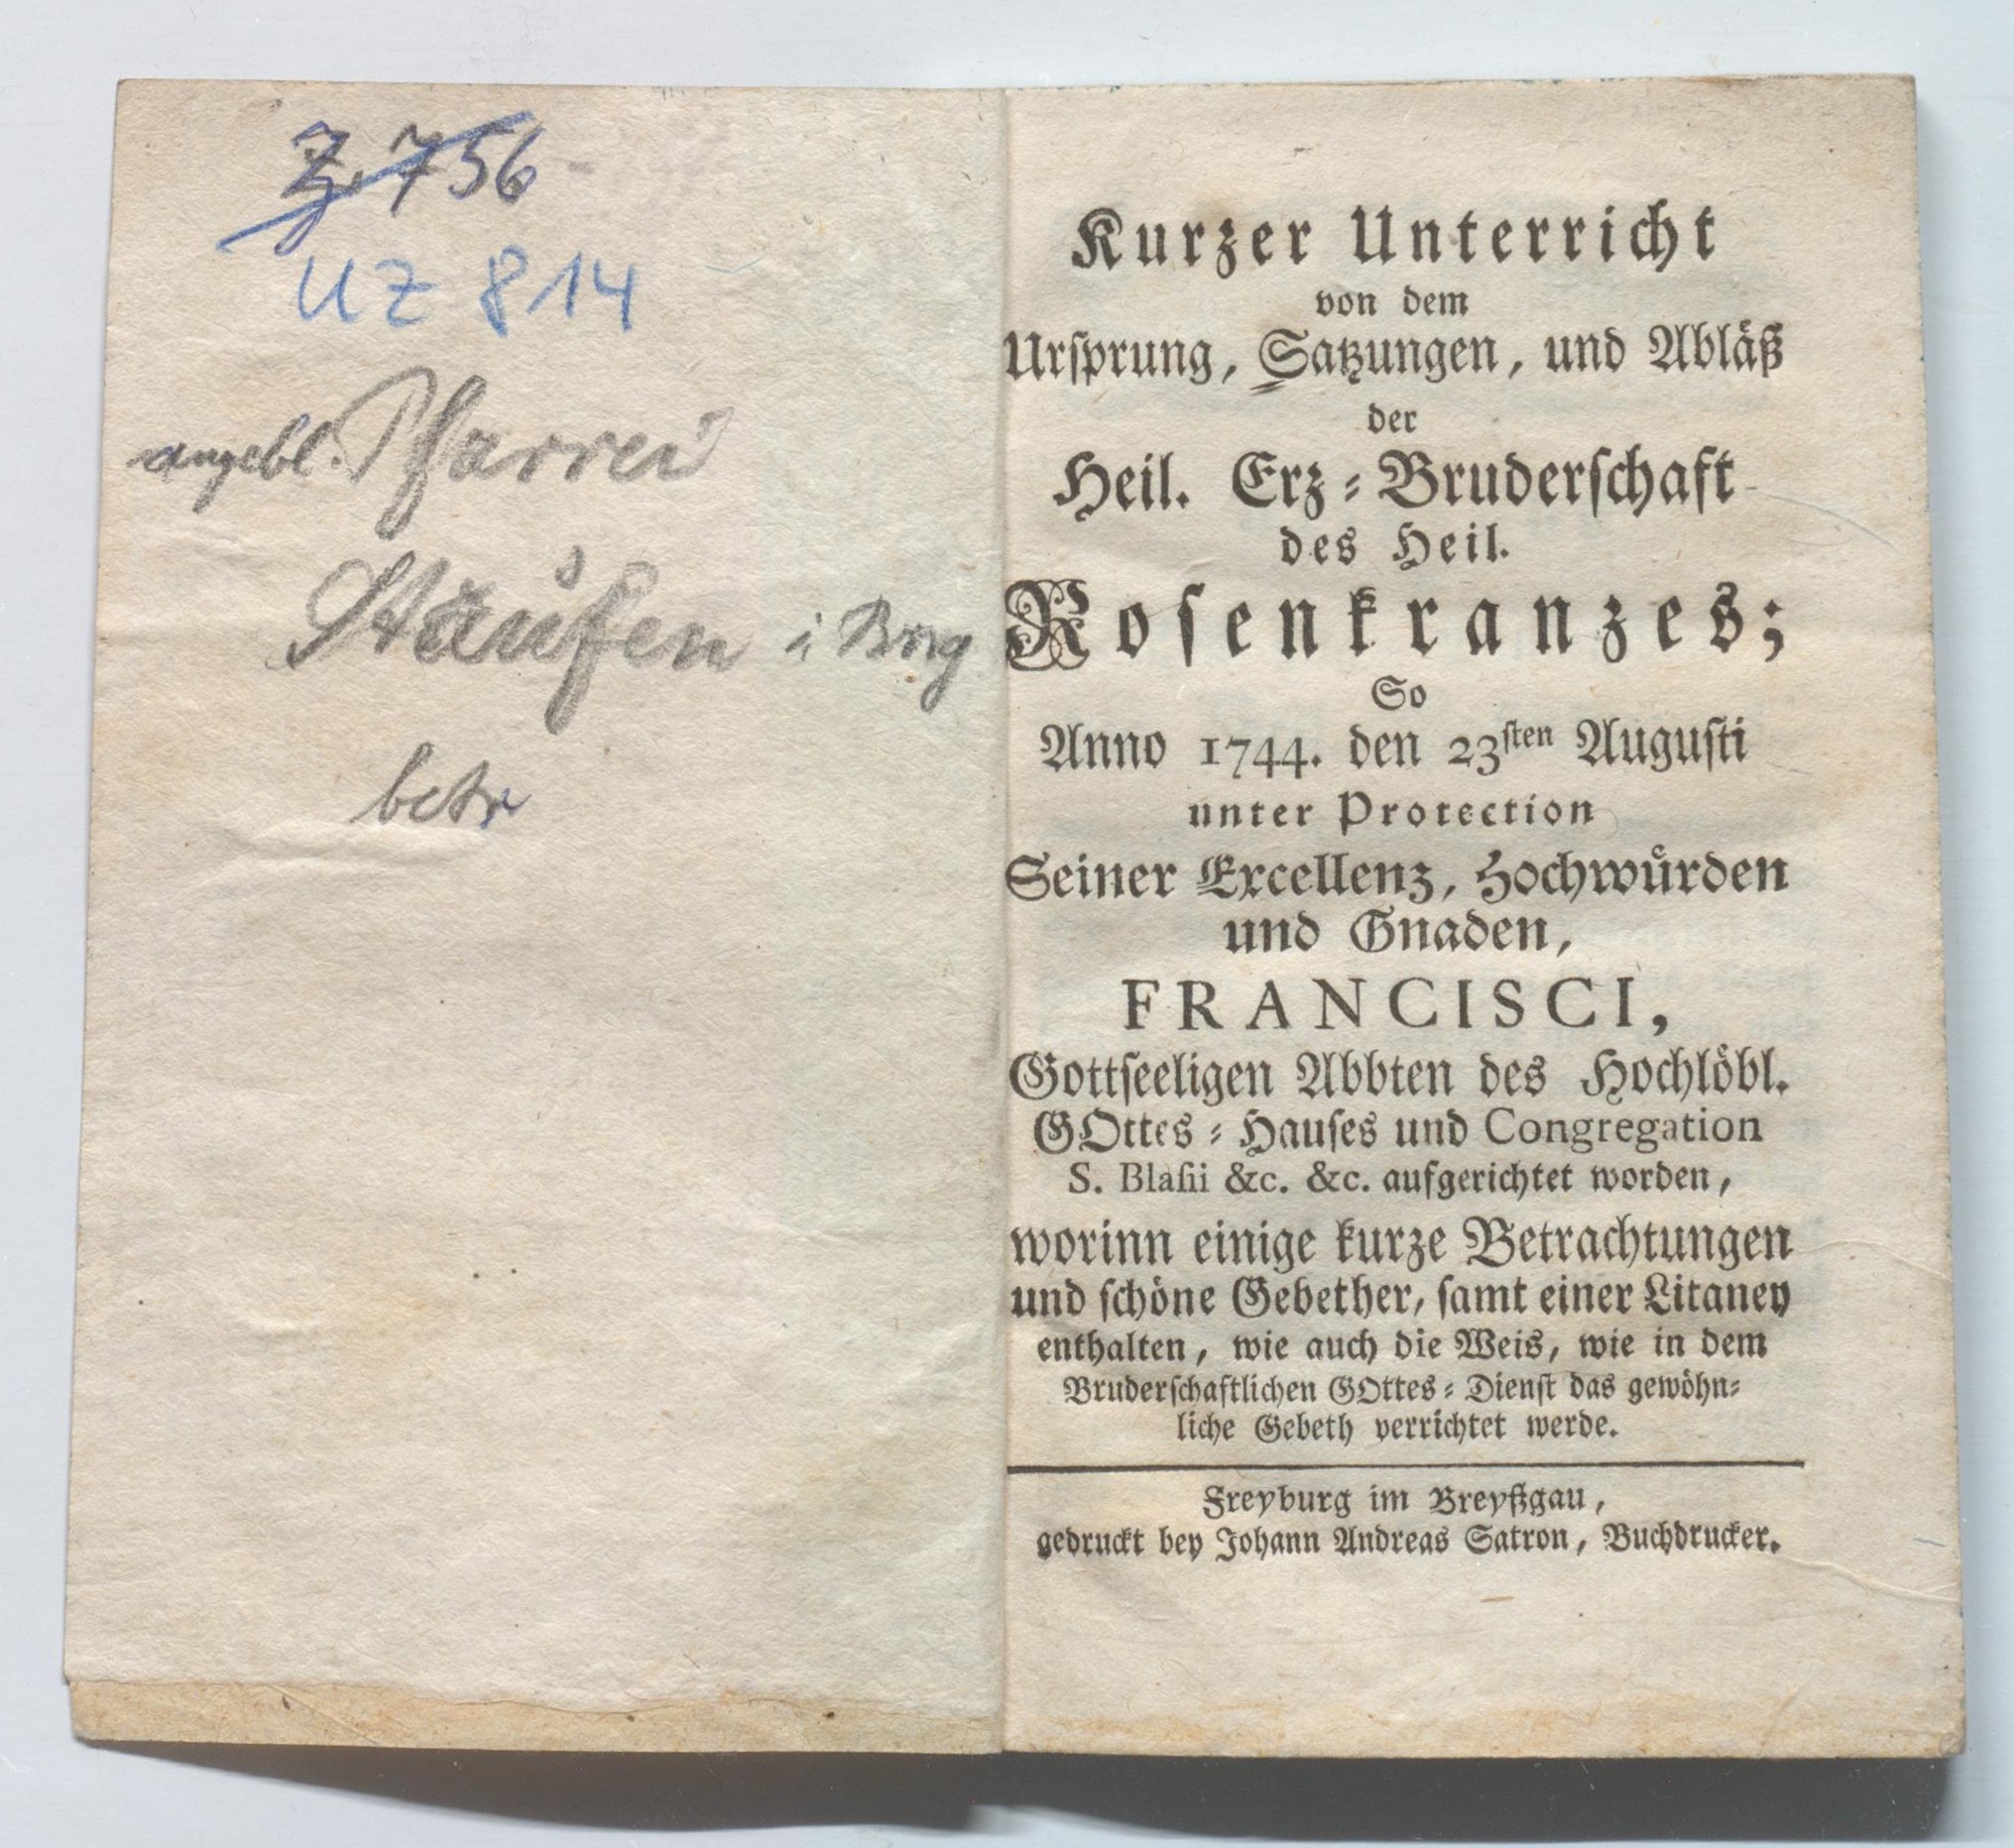 Z. 756
UZ 814
angebl. Pfarrei
Staufen i Brsg
betr
Kurzer Unterricht
von dem
Urſprung, Satzungen, und Abläß
der
Heil. Erz-Bruderſchaft
des Heil.
Roſenkranzes;
So
Anno 1744. den 23ſten Auguſti
unter Protection
Seiner Excellenz, Hochwürden
und Gnaden,
FRANCISCI,
Gottſeeligen Abbten des Hochlöbl.
GOttes-Hauſes und Congregation
S. Blaſii &c. &c. aufgerichtet worden,
worinn einige kurze Betrachtungen
und ſchöne Gebether, ſamt einer Litaney
enthalten, wie auch die Weis, wie in dem
Bruderſchaftlichen GOttes-Dienſt das gewöhn-
liche Gebeth verrichtet werde.
Freyburg im Breyßgau,
gedruckt bey Johann Andreas Satron, Buchdrucker.